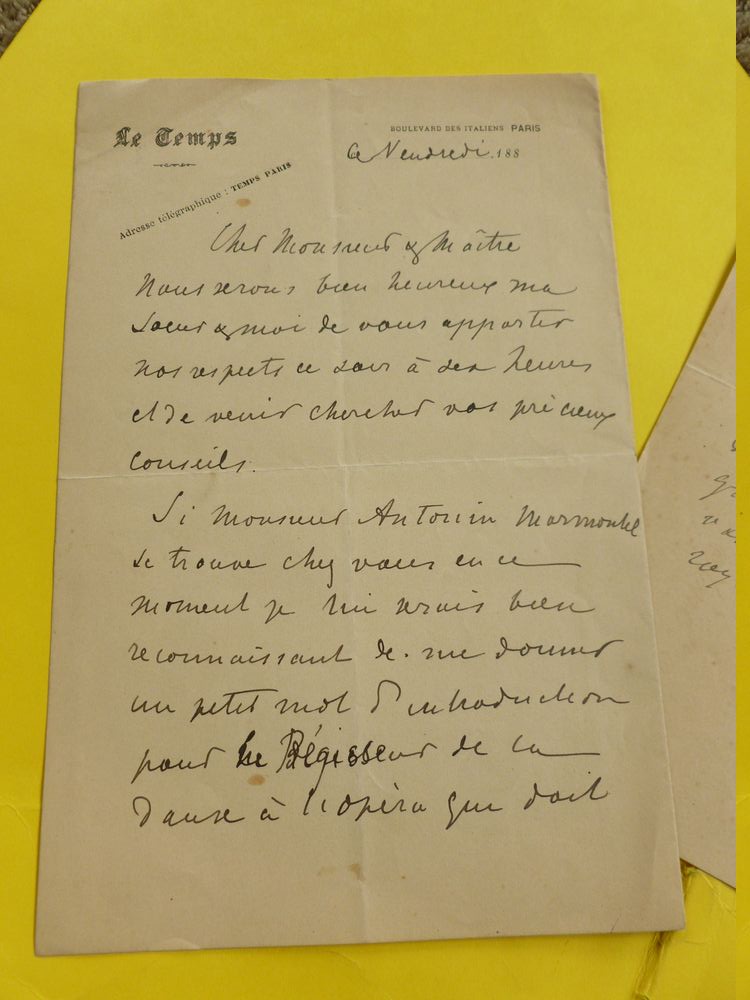 Le Temps
BOULEVARD DES ITALIENS PARIS
Ce Vendredi 188
Adresse télégraphique : TEMPS PARIS
Cher Monsieur & Maître
Nous serons bien heureux ma
Soeur & moi de vous apporter
nos respects ce soir à six heures
et de venir chercher vos précieux
Conseils.
Si Monsieur Antonin Marmontel
se trouve chez vous en ce
moment je lui serais bien
reconnaissant de me donner
un petit mot d'introduction
pour le Régisseur de la
Danse à l'opéra qui doit